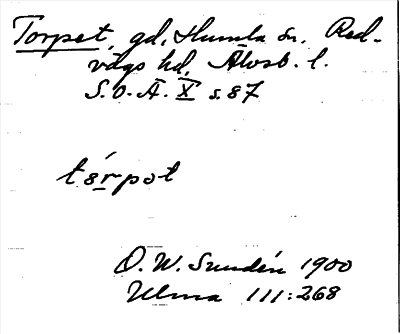 Torpet, gd, Humla sn. Red-
vägs hd, Älvsb. l.
S.O.Ä. X s. 87
O. W. Sundén 1900
Ulma 111:268